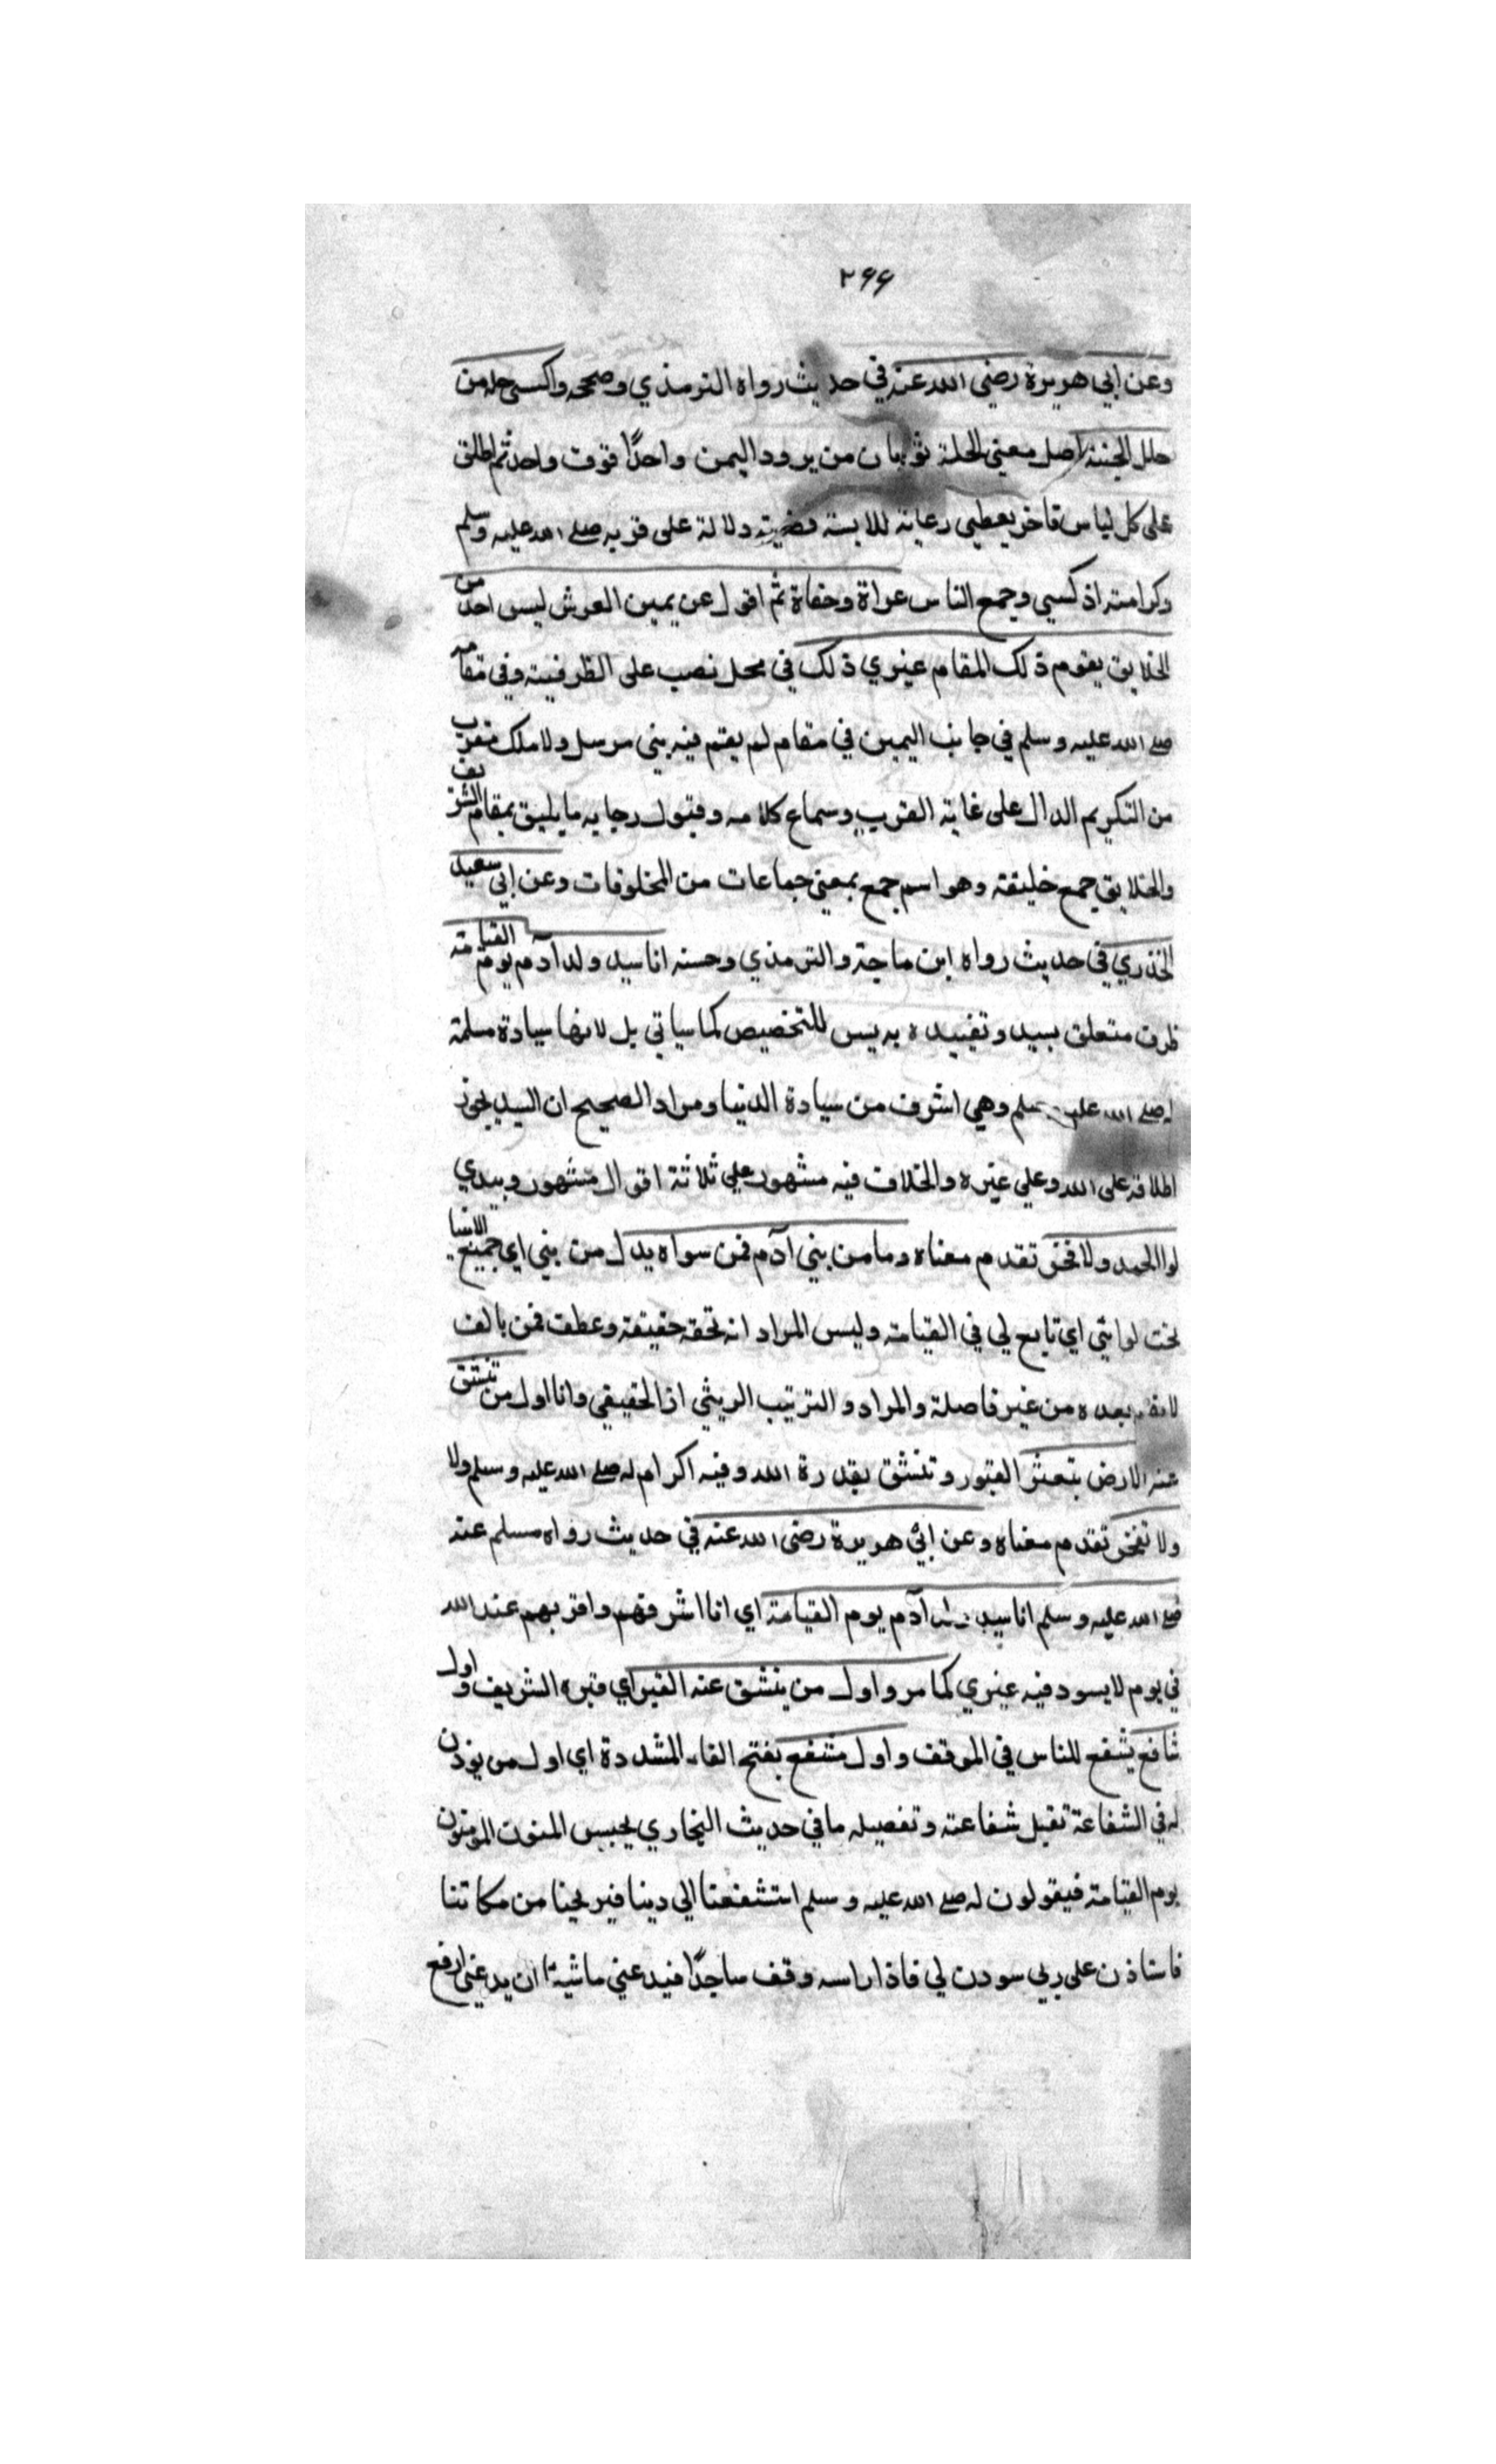 ٢٦٦
وعن ابي هريرة رضي الله عنه في حديث رواه الترمذي وصححه واكسى حلة من
حلل الجنة اصل معني الحلة ثوبان من برود اليمن واحدًا فوق واحد ثم اطلق
على كل لباس فاخر يعطي رعاية للابسه دلالة على قربه صلى الله عليه وسلم
وكرامته اذ كسي وجمع الناس عراة وحفاة ثم اقول عن يمين العرش ليس احد من
الخلايق يقوم ذلك المقام غيري ذلك في محل نصب على الظرفية وفي مقامه
صلى الله عليه وسلم في جانب اليمين في مقام لم يقم فيه نبي مرسل ولا ملك مقرب
من التكريم الدال على غاية القرب وسماع كلامه وقبول رجايه ما يليق بمقام الشريف
والخلايق جمع خليقة وهو اسم جمع بمعني جماعات من المخلوقات وعن ابي سعيد
الخذري في حديث رواه ابن ماجة والترمذي وحسنه انا سيد ولد آدم يوم القيامة
ظرف متعلق بسيد وتقييده به يس للتخصيص كما سياتي بل لانها سيادة مسلمة
له صلى الله عليه وسلم وهي اشرف من سيادة الدنيا ومراد الصحيح ان السيد يجوز
اطلاقه على الله وعلي غيره والخلاف فيه مشهور علي ثلاثة اقوال مشهور وبيدي
لوا الحمد ولا فخر تقدم معناه وما من بني آدم فمن سواه بدل من بني اي جميع الانبيا
تحت لوايي اي تابع لي في القيامة وليس المراد انه تحته حقيقة وعطف فمن بالف
بعده من غير فاصلة والمراد و الترتيب الريثي اذ الحقيقي وانا اول من تنشق
عنه الارض بتعثر القبور وتنشق بقدرة الله وفيه اكرام له صلى الله عليه وسلم ولا
ولا فخر تقدم معناه وعن ابي هريرة رضي الله عنه في حديث رواه مسلم عنه
صلى الله عليه وسلم انا سيد ولد آدم يوم القيامة اي انا اشرفهم واقربهم عند الله
في يوم لا يسود فيه غيري كما مر واول من ينشق عنه القبر اي قبره الشريف واول
شافع يشفع للناس في الموقف واول مشفع بفتح الفاء المشددة اي اول من يوذن
له في الشفاعة تقبل شفاعته وتفصيله ما في حديث البخاري يحبس المومنون
يوم القيامة فيقولون له صلى الله عليه وسلم استشفعنا الي ربنا فيريحنا من مكاننا
فاستاذن على ربي سودن لي فاذا راسه وقف ساجدًا فيدعني ماشية ان يدعني ارفع